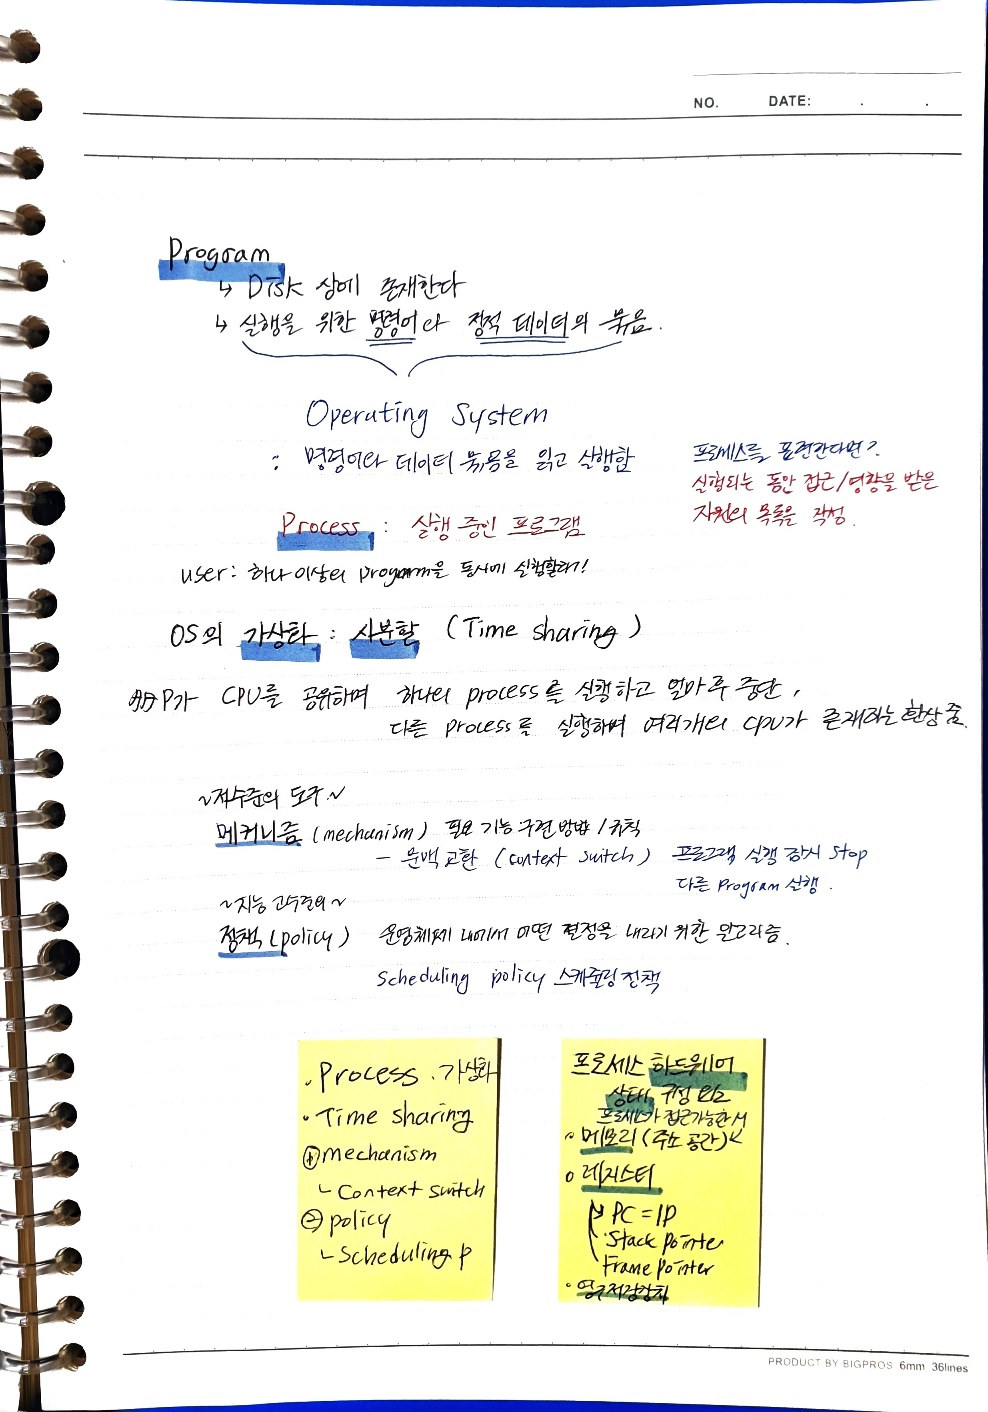 NO. DATE: . .
Program
↳ Disk 상에 존재한다
↳ 실행을 위한 명령어와 정적 데이터의 묶음.
Operating System
: 명령어와 데이터 묶음을 읽고 실행함
프로세스를 표현한다면?
실행되는 동안 접근/영향을 받은
자원의 목록을 작성.
Process : 실행 중인 프로그램
user : 하나 이상의 program을 동시에 실행할래!
OS의 가상화 : 시분할 (Time sharing)
CPU를 공유하며 하나의 process를 실행하고 얼마후 중단,
다른 process를 실행하며 여러개의 CPU가 존재하는 환상 줌.
~저수준의 도구~
메커니즘 (mechanism) 필요 기능 구현 방법 / 규칙
- 문맥 교환 (context switch) 프로그램 실행 잠시 stop
다른 program 실행.
~지능 고수준의~
정책 (policy) 운영체제 내에서 어떤 결정을 내리기 위한 알고리즘.
scheduling policy 스케쥴링 정책
· Process · 가상화
· Time sharing
① mechanism
└ Context switch
② policy
└ Scheduling p
프로세스 하드웨어
상태 구성 요소
프로세스가 접근가능한
○ 메모리 (주소 공간)
○ 레지스터
PC = IP
· Stack pointer
Frame pointer
○ 영구저장장치
PRODUCT BY BIGPROS 6mm 36lines